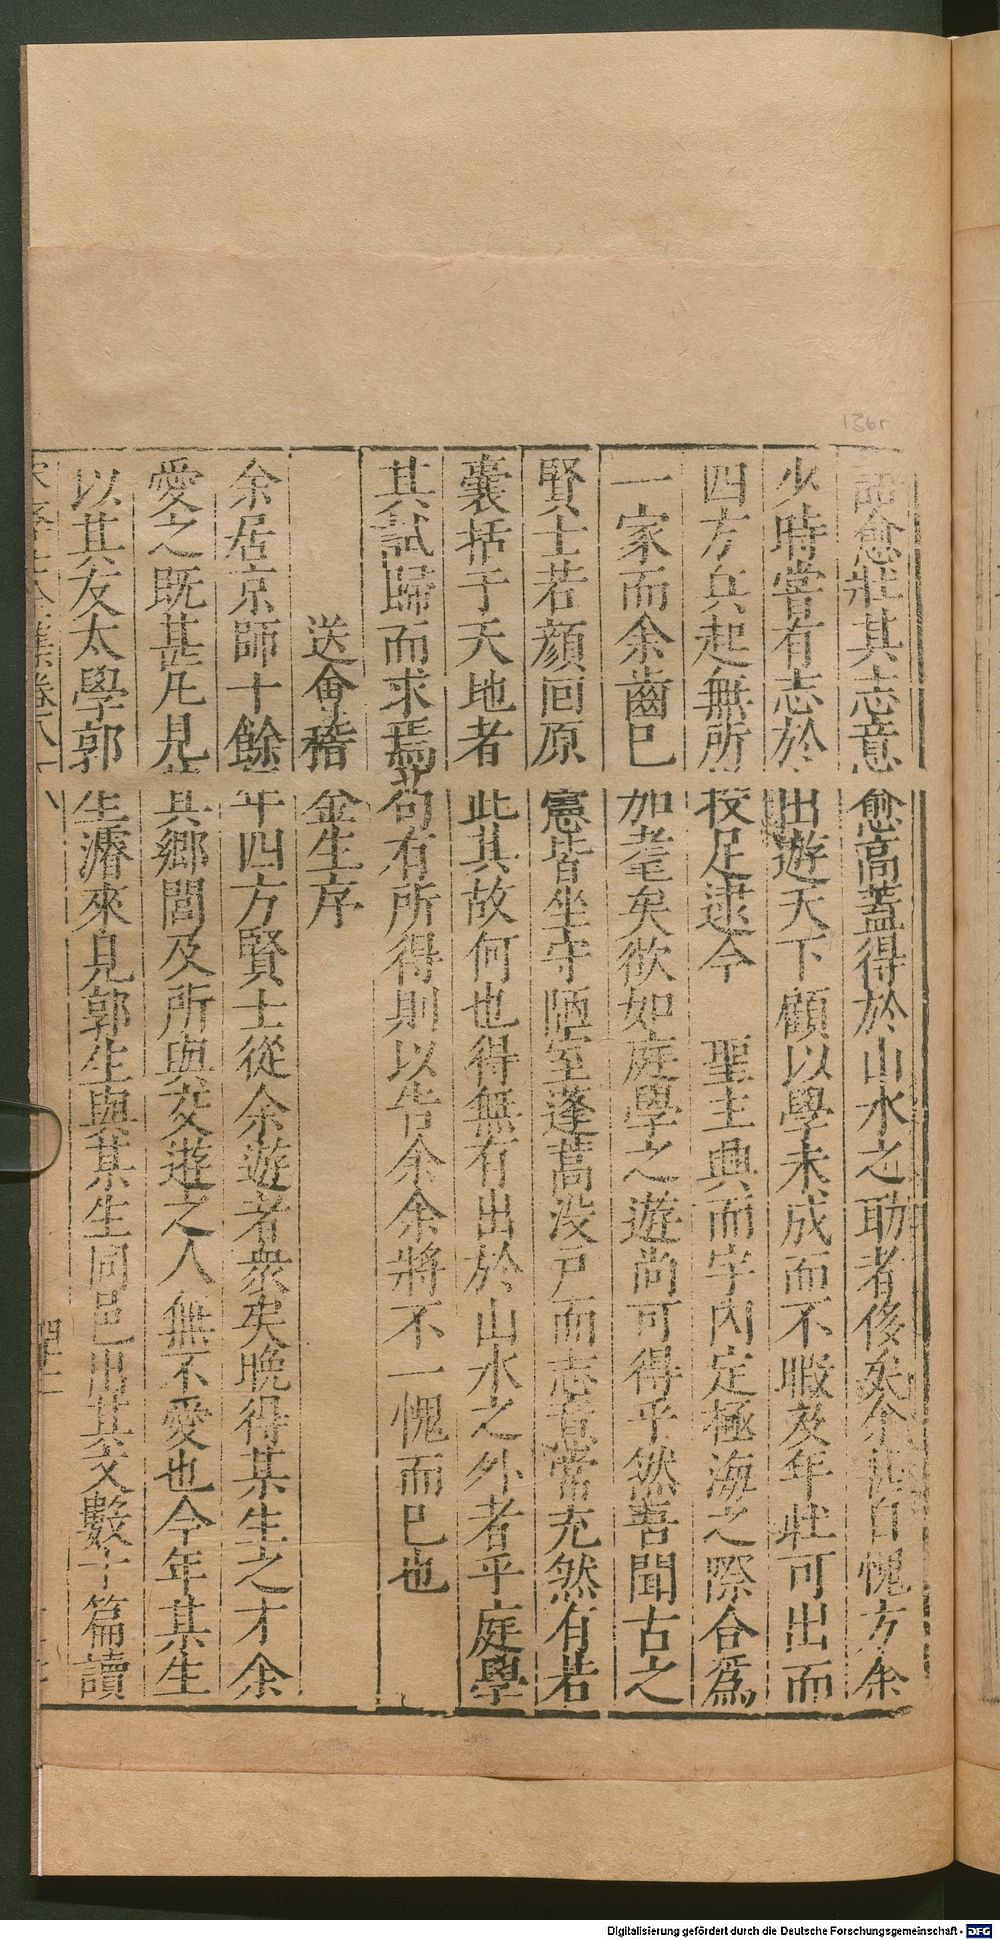 而愈壯其志意愈高蓋得於山水之助者侈矣余甚自愧方余
少時嘗有志於出遊天下顧以學未成而不暇及年壯可出而
四方兵起無所投足逮今 聖主興而宇內定極海之際合爲
一家而余齒已加耄矣欲如庭學之遊尚可得乎然吾聞古之
賢士若顔囘原憲皆坐守陋室蓬蒿没戸而志意常充然有若
囊括于天地者此其故何也得無有出於山水之外者乎庭學
其試歸而求焉茍有所得則以告余余將不一愧而巳也
送會稽金生序
余居京師十餘年四方賢士從余遊者衆矣晚得某生之才余
愛之既甚凡見其鄉閭及所與交遊之人無不愛也今年某生
以其友太學郭生濬來見郭生與某生同邑出其文數十篇讀
Digitalisierung gefördert durch die Deutsche Forschungsgemeinschaft - DFG